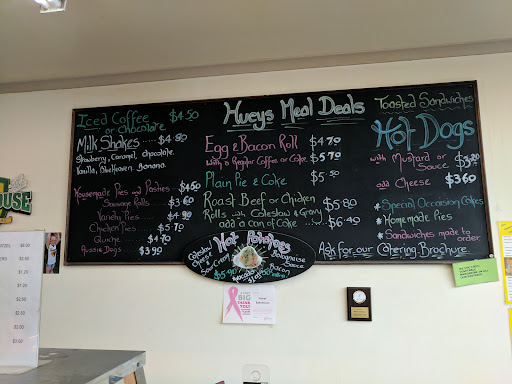 Iced Coffee $4.50
or chocolate
Milk Shakes $4.80
Strawberry, Caramel, chocolate
Vanilla, Blue Heaven, Banana
Housemade Pies and Pasties $4.50
Sausage Rolls 3.60
Variety Pies $4.90
Chicken Pies $5.70
Quiche $4.70
Aussie Dogs $3.90
Hueys Meal Deals
Egg & Bacon Roll $4.70
with a Regular Coffee or Coke $5.70
Plain Pie & Coke $5.50
Roast Beef or Chicken $5.80
Rolls with Coleslaw & Gravy
add a can of Coke $6.40
Toasted Sandwiches
Hot Dogs
with Mustard or Sauce $3.20
add Cheese $3.60
* Special Occasion Cakes
* Homemade Pies
* Sandwiches made to order
Ask for our Catering Brochure
Hot Potatoes
Coleslaw
Cheese
Sour Cream
Bolognaise
Sauce
Bacon
$5.90
HOUSE
BIG
THANK
YOU